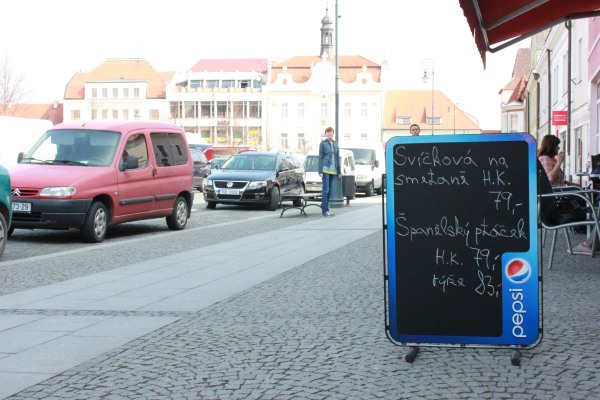 Svíčková na
smetaně H.K.
79,-
Španělský ptáček
H.K. 79,-
rýže 83,-
pepsi
73-29